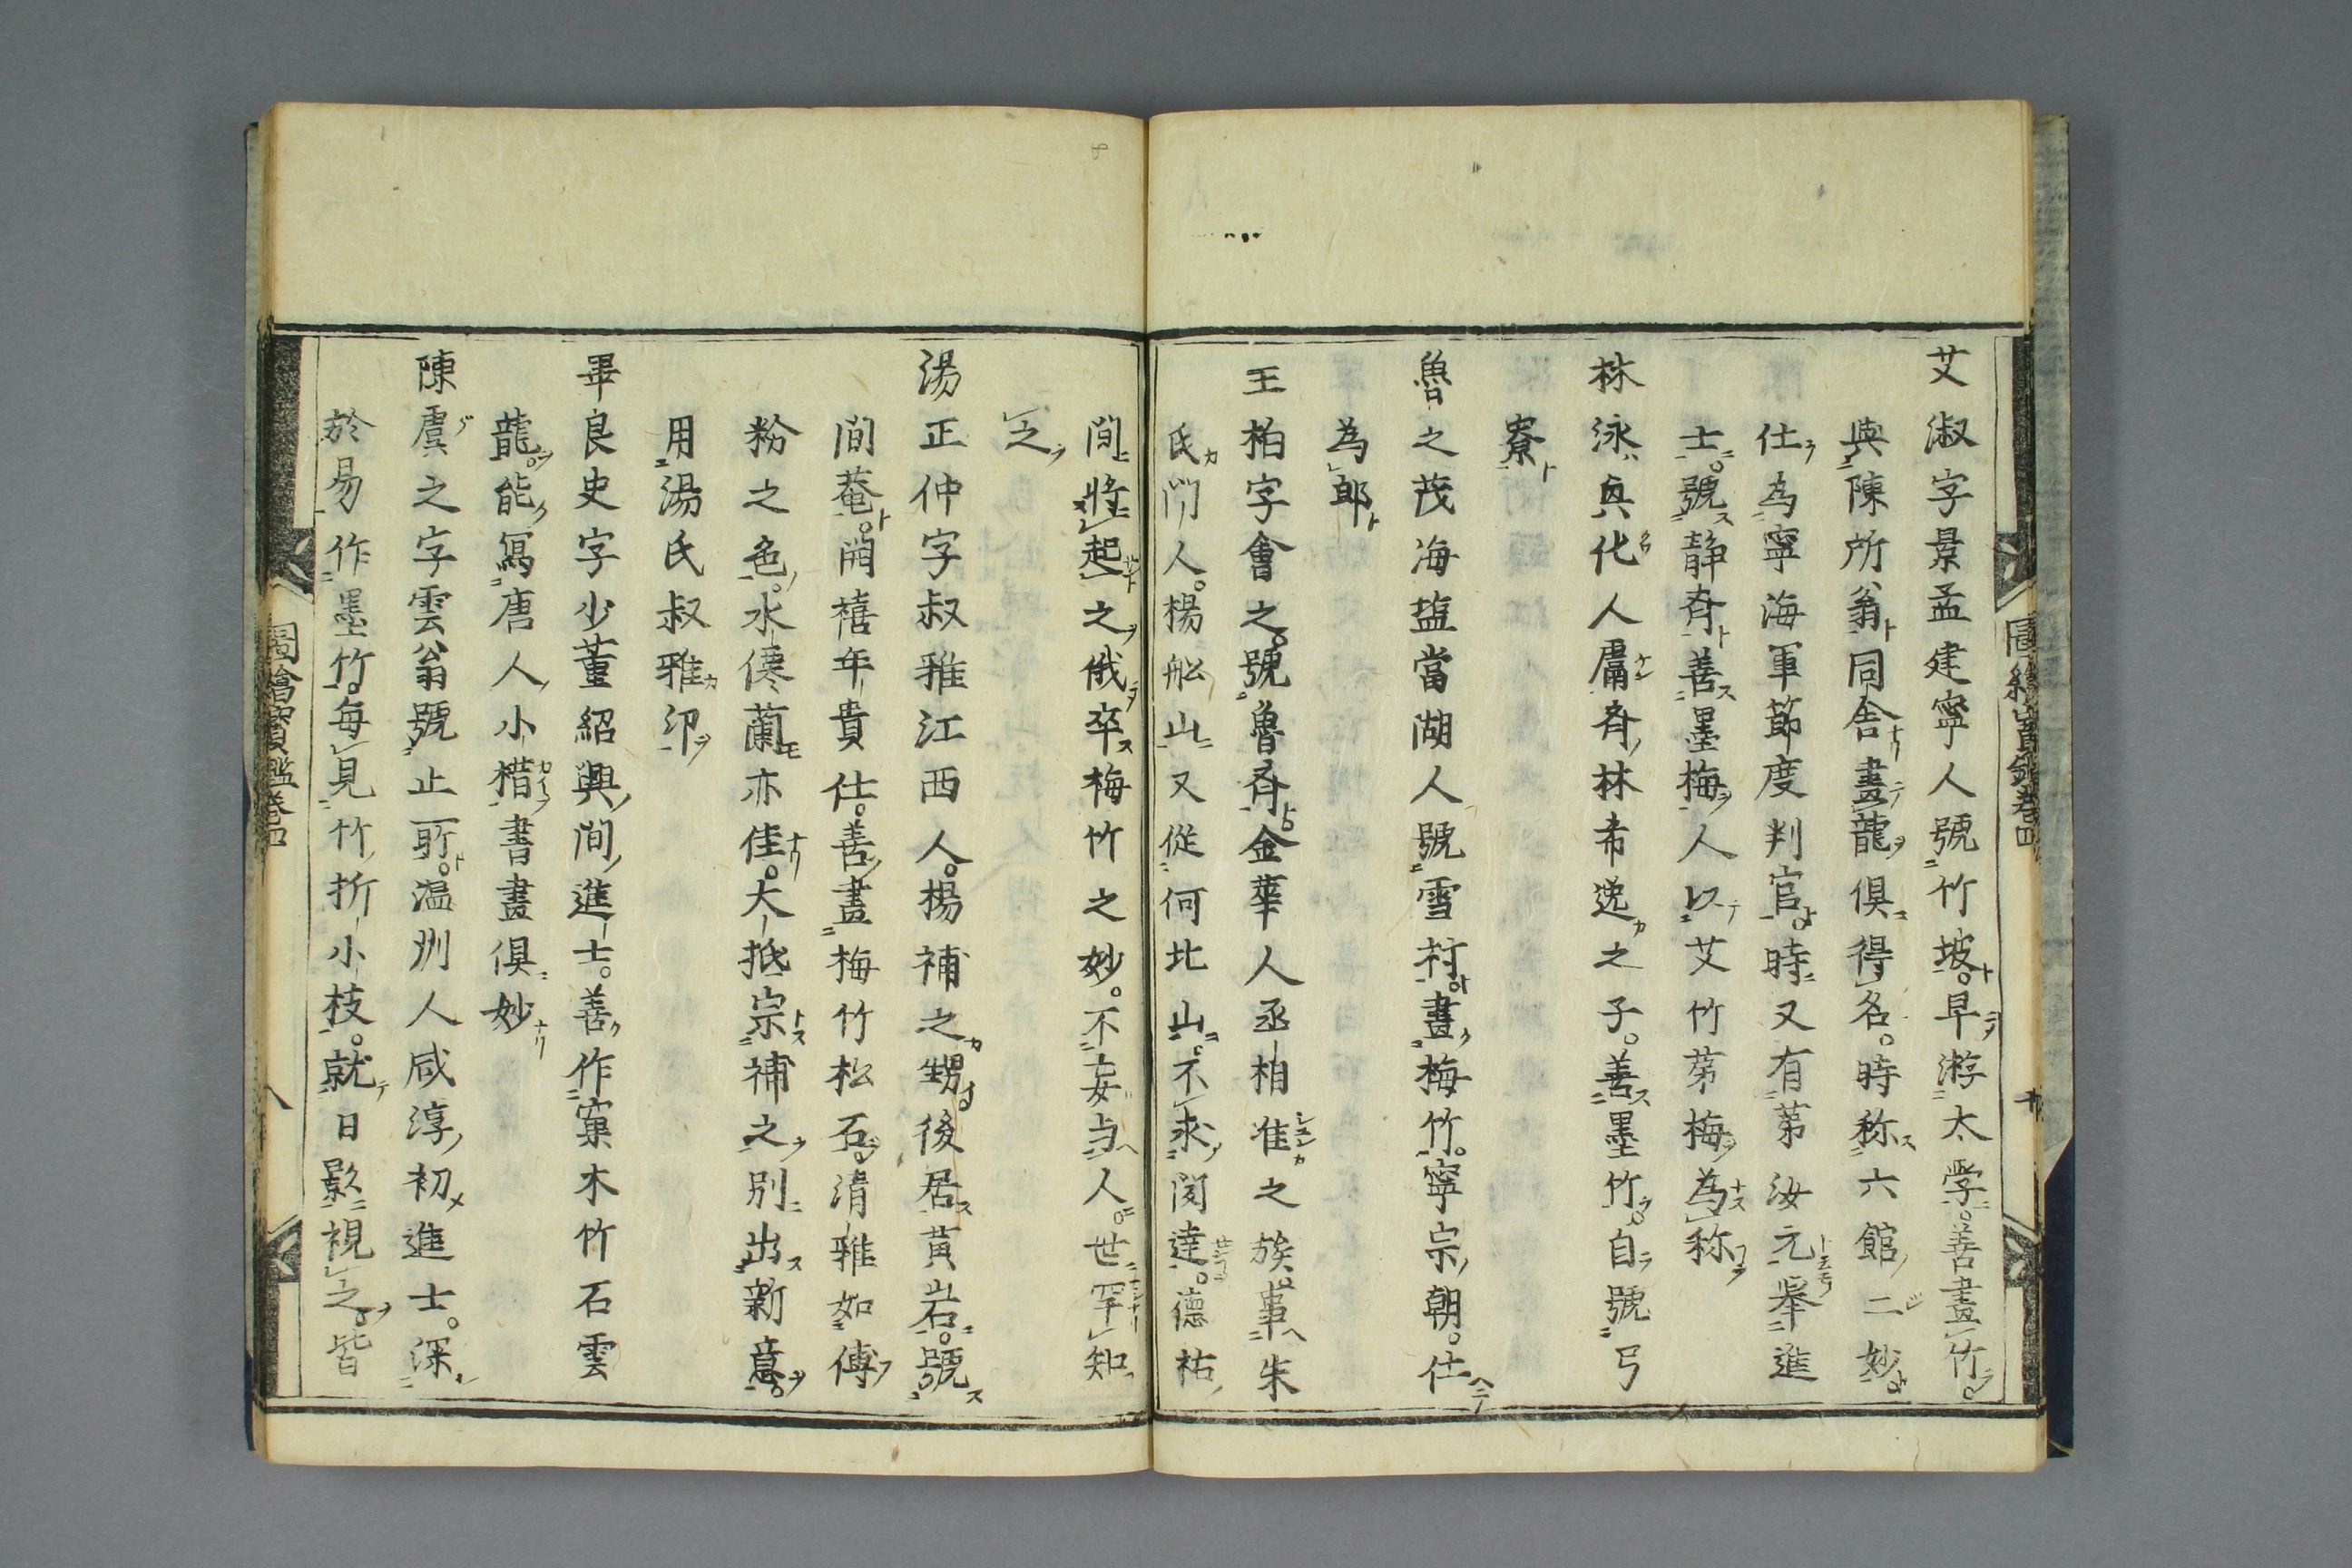 艾淑字景孟建寧人號竹坡早游太学善畫竹
與陳所翁同舎畫龍俱得名時称六館二妙
仕為寧海軍節度判官時又有苐汝元舉進
士號静斉善墨梅人以艾竹苐梅為称
林泳真化人庸斉林希逸之子善墨竹自號弓
寮
魯之茂海塩當湖人號雪村畫梅竹寧宗朝仕
為郎
王柏字會之號魯斉金華人丞相准之族事朱
氏門人楊舩山又從何北山不求聞達德祐
間將起之俄卒梅竹之妙不妄与人世罕知
之
湯正仲字叔雅江西人楊補之甥後居黃岩號
間菴開禧年貴仕善畫梅竹松石清雅如傅
粉之色水僊蘭亦佳大抵宗補之別出新意
用湯氏叔雅印
畢良史字少董紹興間進士善作窠木竹石雲
龍能寫唐人小楷書畫俱妙
陳虞之字雲翁號止所温州人咸淳初進士深
於易作墨竹每見竹折小枝就日影視之皆
圖繪寶鑑卷四
八